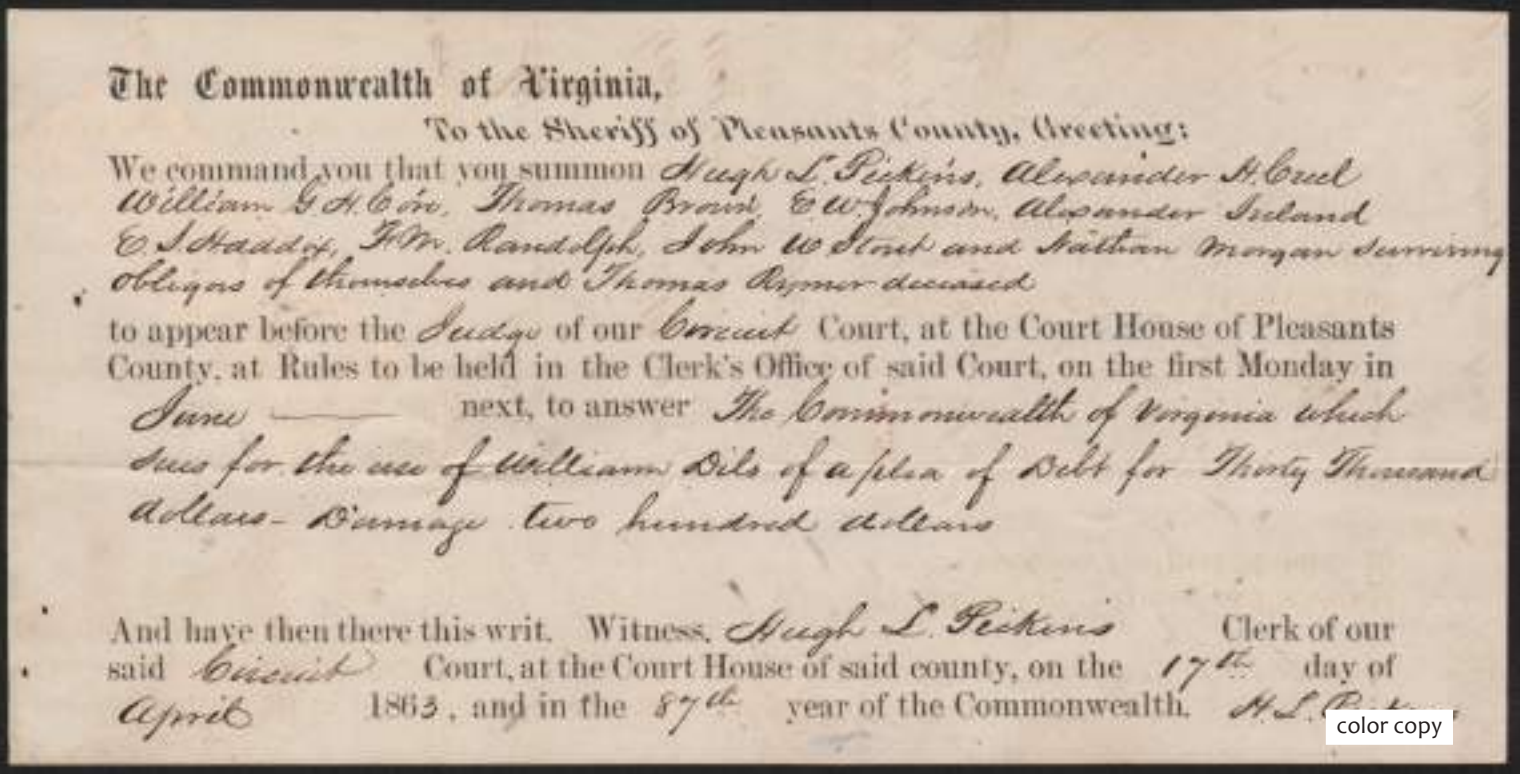 The Commonwealth of Virginia,
To the Sheriff of Pleasants County, Greeting:
We command you that you summon Hugh L. Pickins, Alexander H. Creel
William G. H. Core, Thomas Brown, E W Johnson, Alexander Ireland
E. S. Haddox, F. M. Randolph, John W Stout and Nathan Morgan surviving
obligors of themselves and Thomas Rymer deceased
to appear before the Judge of our Circuit Court, at the Court House of Pleasants
County, at Rules to be held in the Clerk's Office of said Court, on the first Monday in
June — next, to answer The Commonwealth of Virginia which
sues for the use of William Dils of a plea of Debt for Thirty Thousand
dollars - Damage two hundred dollars
And have then there this writ. Witness, Hugh L. Pickins Clerk of our
said Circuit Court, at the Court House of said county, on the 17th day of
April 1863, and in the 87th year of the Commonwealth. H. L.
color copy